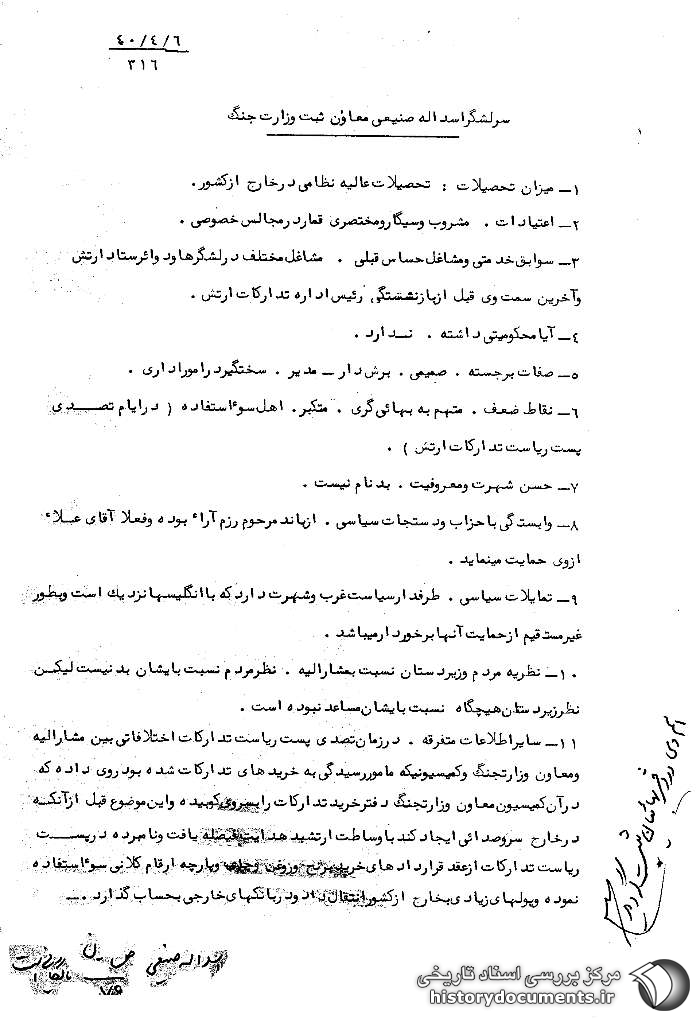 ٤٠/٤/٦
٣١٦
سرلشگر اسداله صنیعی معاون ثبت وزارت جنگ
١ـ میزان تحصیلات : تحصیلات عالیه نظامی در خارج از کشور .
٢ـ اعتیادات . مشروب وسیگار ومختصری قمار در مجالس خصوصی .
٣ـ سوابق خدمتی ومشاغل حساس قبلی . مشاغل مختلف در لشگرها ود وائر ستاد ارتش
وآخرین سمت وی قبل از بازنشستگی رئیس اداره تدارکات ارتش .
٤ـ آیا محکومیتی داشته . ندارد .
٥ـ صفات برجسته . صمیمی . برش دار ـ مدیر . سختگیر در امور اداری .
٦ـ نقاط ضعف . متهم به بهائی گری . متکبر . اهل سوء استفاده ( در ایام تصدی
پست ریاست تدارکات ارتش ) .
٧ـ حسن شهرت ومعروفیت . بد نام نیست .
٨ـ وابستگی با حزاب ود ستجات سیاسی . از باند مرحوم رزم آراء بوده وفعلا آقای علاء
از وی حمایت مینماید .
٩ـ تمایلات سیاسی . طرفدار سیاست غرب وشهرت دارد که با انگلیسها نزدیك است وبطور
غیر مستقیم از حمایت آنها برخوردار میباشد .
١٠ـ نظریه مردم وزیردستان نسبت بمشارالیه . نظر مردم نسبت بایشان بد نیست لیکن
نظر زیردستان هیچگاه نسبت بایشان مساعد نبوده است .
١١ـ سایر اطلاعات متفرقه . در زمان تصدی پست ریاست تدارکات اختلافاتی بین مشارالیه
ومعاون وزارتجنگ وکمیسیونیکه مامور رسیدگی به خرید های تدارکات شده بود روی داده که
در آن کمیسیون معاون وزارتجنگ دفتر خرید تدارکات را بسر وی کوبیده واین موضوع قبل از آنکه
در خارج سر وصدائی ایجاد کند با وساطت ارتشبد هدایت فیصله یافت ونامبرده در پست
ریاست تدارکات از عقد قرارداد های خرید برنج وروغن وپارچه ارقام کلانی سوء استفاده
نموده وپولهای زیادی بخارج از کشور انتقال داد ودر بانکهای خارجی بحساب گذارد .ـ
اسداله صنیعی
مرکز بررسی اسناد تاریخی
historydocuments.ir